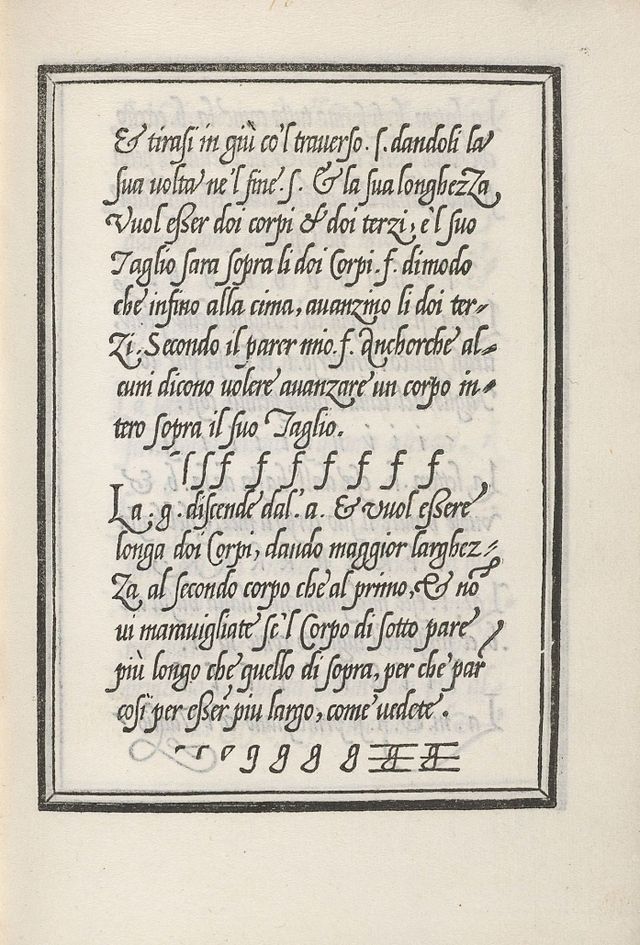 & tirasi in giù co'l traverso. ſ. dandoli la
ſua volta ne'l fine. ſ. & la ſua longhezza
Vuol eſſer doi corpi & doi terzi, e'l ſuo
Taglio ſara ſopra li doi Corpi. f. dimodo
che infino alla cima, auanzino li doi ter-
zi. Secondo il parer mio. f. ancherche al-
cuni dicono volere auanzare un corpo in-
tero ſopra il ſuo Taglio.
ſ ſ f f f f f f f
La. g. diſcende dal'. a. & vuol eſſere
longa doi Corpi, dando maggior larghez-
za al ſecondo corpo che al primo, & nō
vi marauigliate ſe'l Corpo di ſotto pare
più longo che quello di ſopra, per che par
coſi per eſſer piu largo, come vedete.
g g g g g g